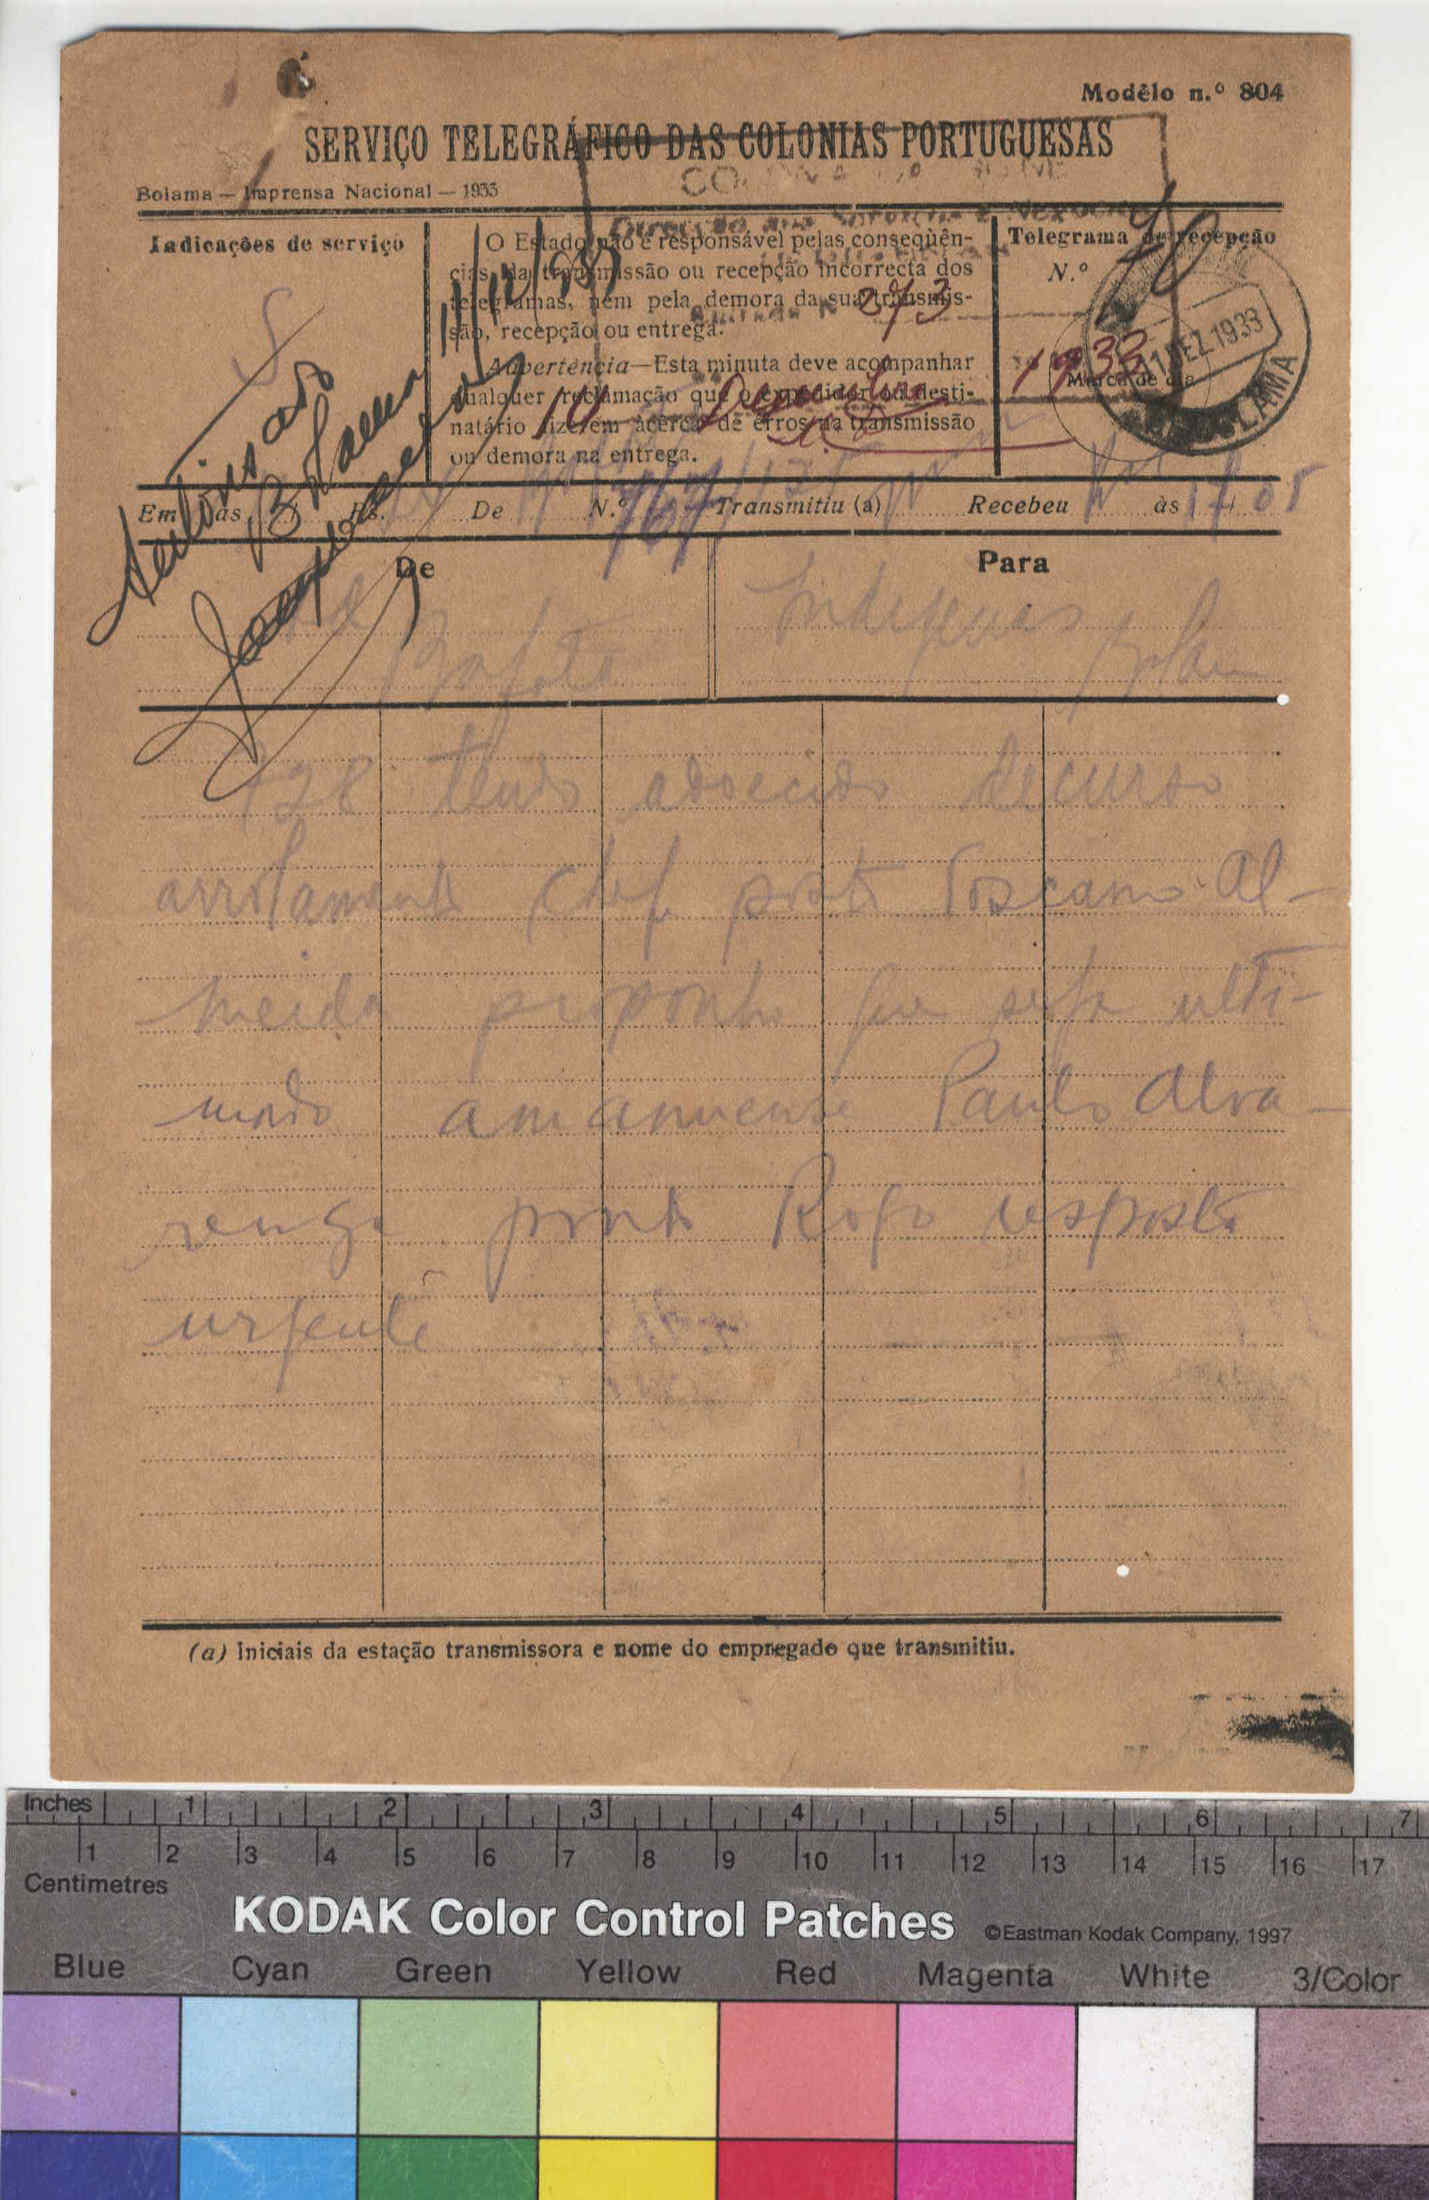 Modêlo n.º 804
SERVIÇO TELEGRÁFICO DAS COLONIAS PORTUGUESAS
Bolama — Imprensa Nacional — 1933
Indicações de serviço
O Estado não é responsável pelas conseqüên-
cias da transmissão ou recepção incorrecta dos
telegramas, nem pela demora da sua transmis-
são, recepção ou entrega.
Advertência—Esta minuta deve acompanhar
qualquer reclamação que o expedidor ou desti-
natário fizerem àcêrca de erros na transmissão
ou demora na entrega.
Telegrama de recepção
N.º
Marca de dia
11 DEZ. 1933
BOLAMA
273
10 Dezembro 1933
11/12/933
Autorisado
Em às Hs. De N.º Transmitiu (a) Recebeu às 17 05
De
Para
Bafatá
Indigenas
Bolama
128 tendo adoecido decurso
arrolamento chefe posto Toscano Al-
meida proponho que seja ulti-
mado amanuense Paulo Alva-
renga ponto Rogo resposta
urgente
(a) Iniciais da estação transmissora e nome do empregado que transmitiu.
Inches 1 2 3 4 5 6 7
1 2 3 4 5 6 7 8 9 10 11 12 13 14 15 16 17
Centimetres
KODAK Color Control Patches ©Eastman Kodak Company, 1997
Blue Cyan Green Yellow Red Magenta White 3/Color